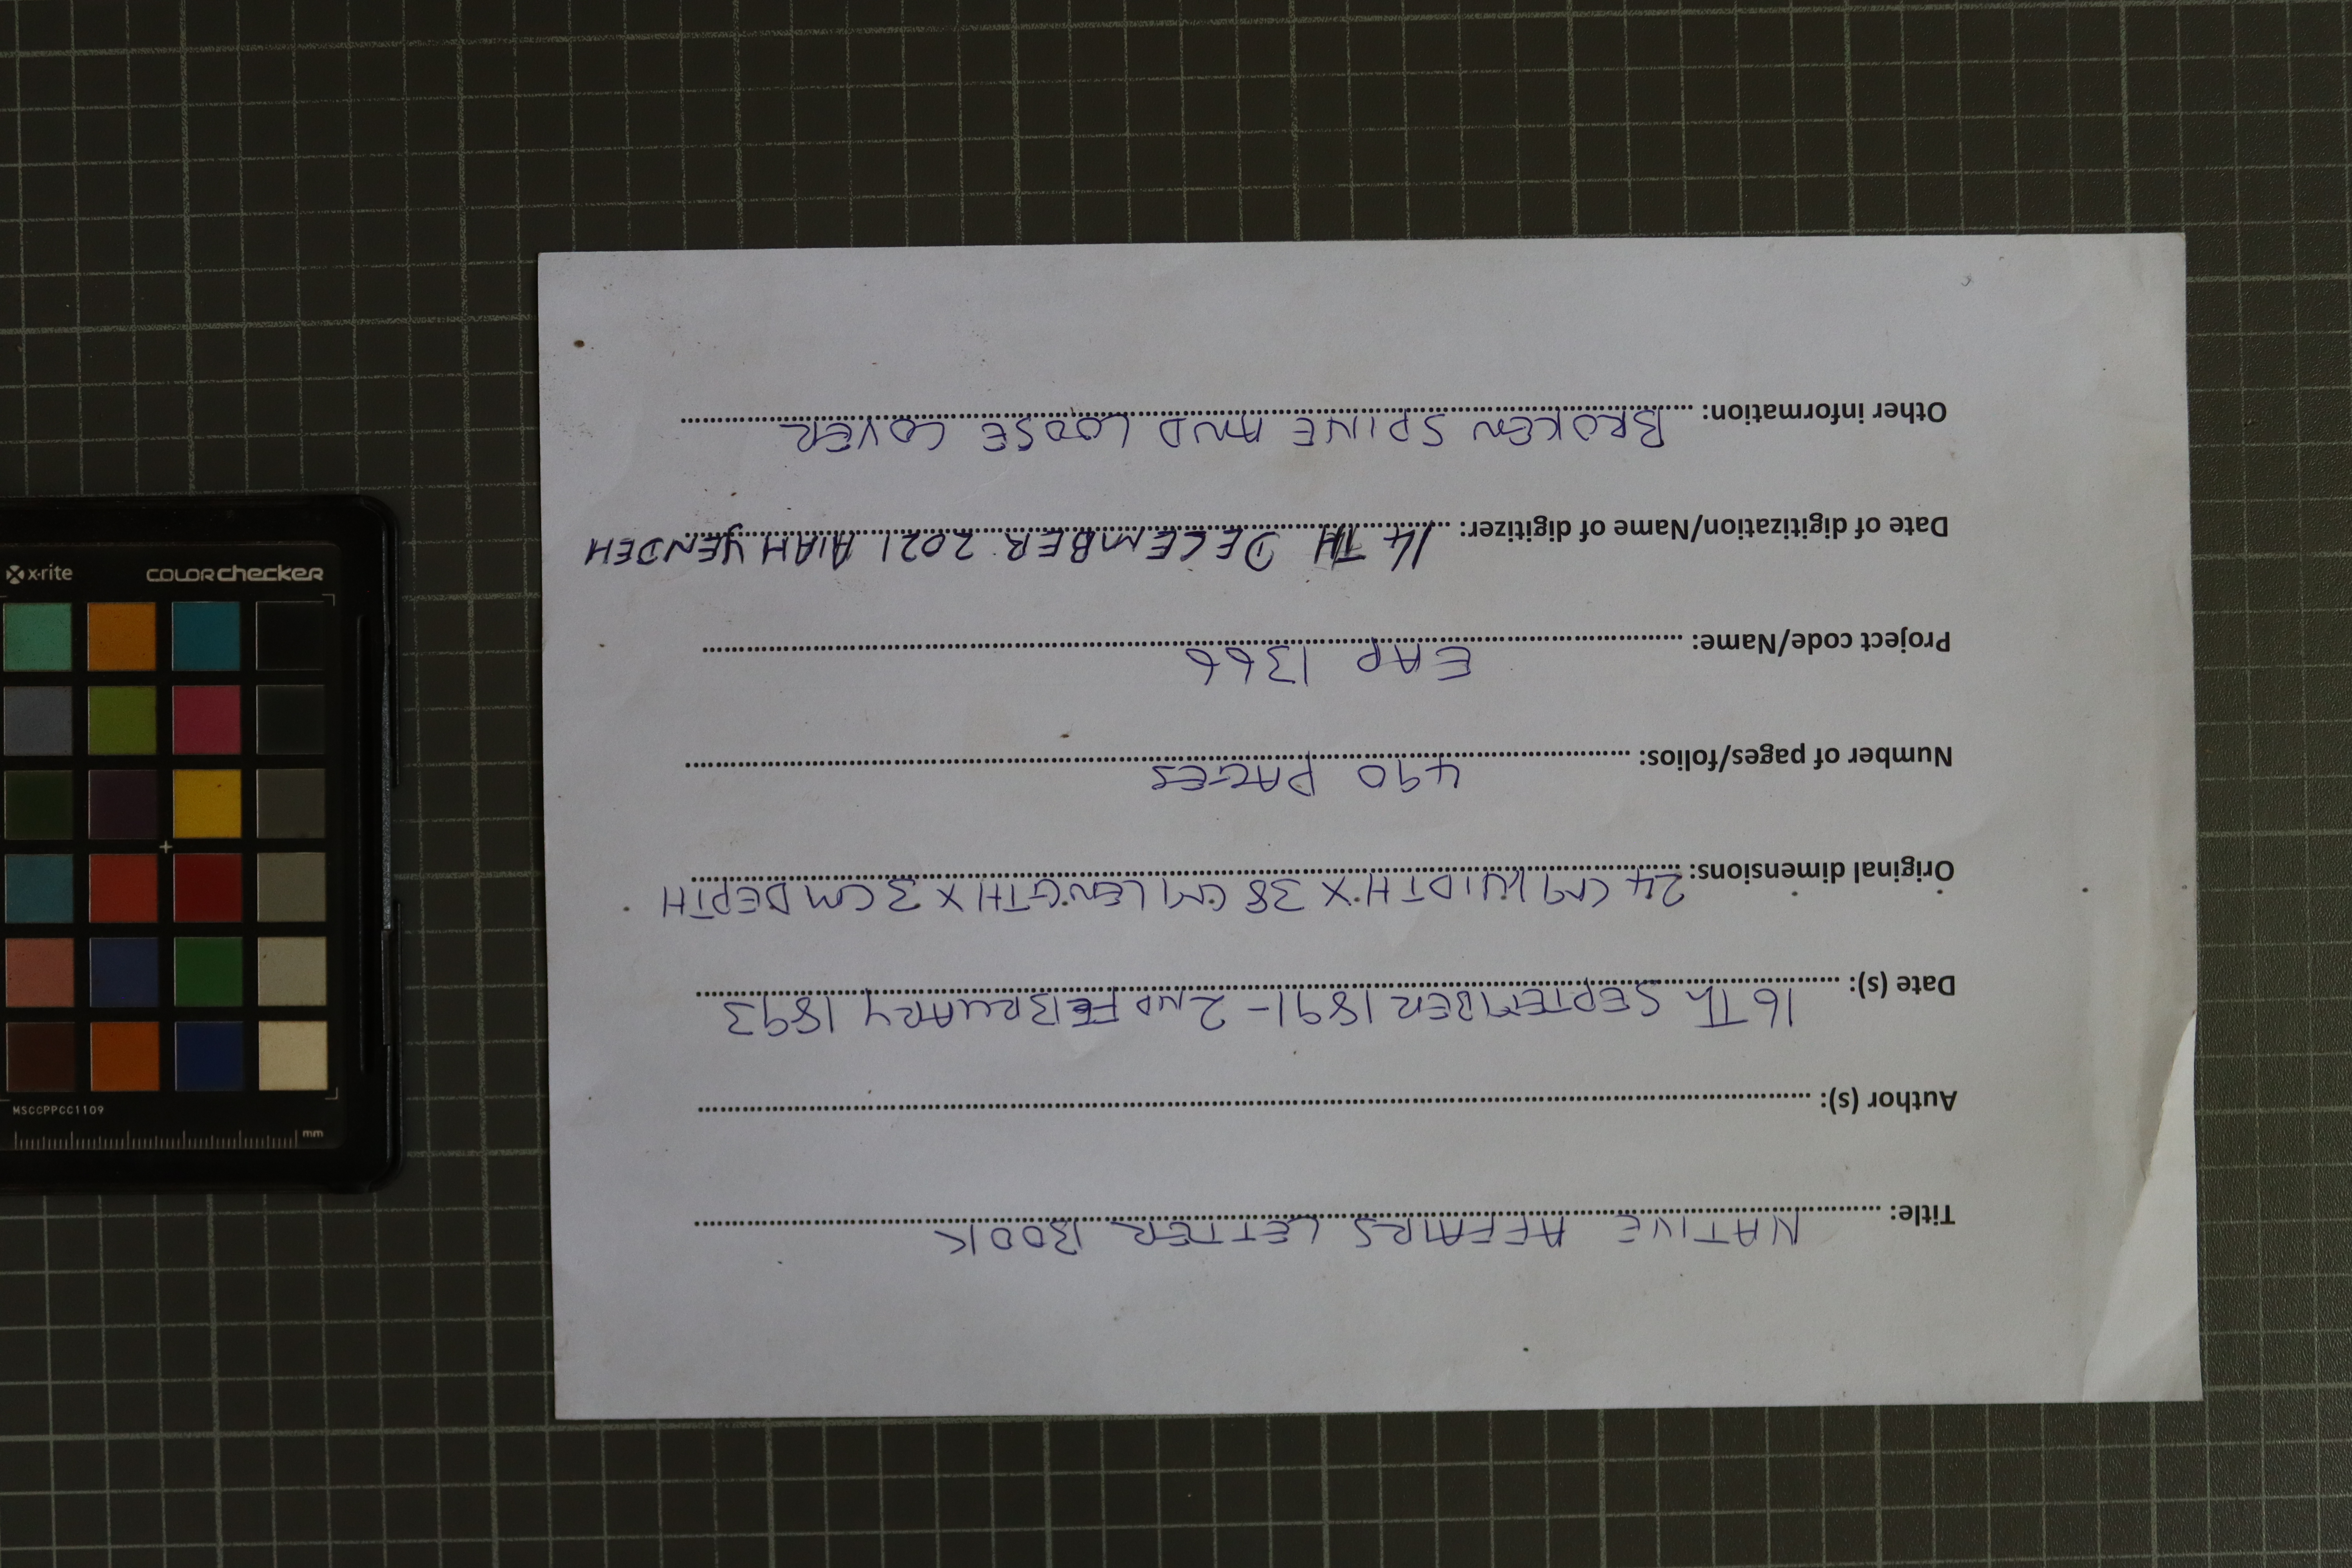 Title: NATIVE AFFAIRS LETTER BOOK
Author (s):
Date (s): 16Th SEPTEMBER 1891 - 2ND FEBRUARY 1893
Original dimensions: 24 CM WIDTH X 38 CM LENGTH X 3 CM DEPTH
Number of pages/folios: 490 PAGES
Project code/Name: EAP 1366
Date of digitization/Name of digitizer: 14 TH DECEMBER 2021 AIAH YENDEH
Other information: BROKEN SPINE AND LOOSE COVER
x-rite colorchecker
MSCCPPCC1109
mm